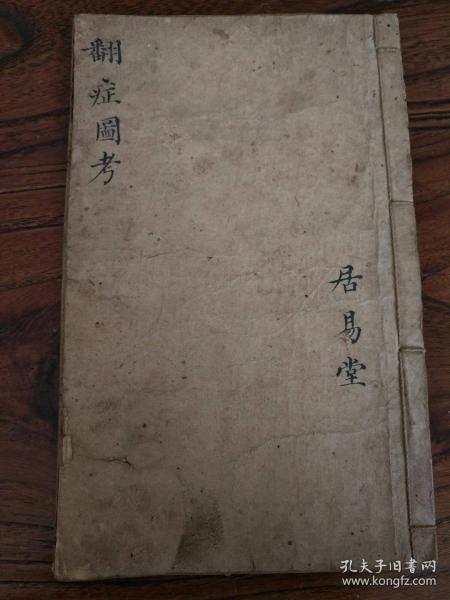 翻症圖考
居易堂
孔夫子旧书网
www.kongfz.com